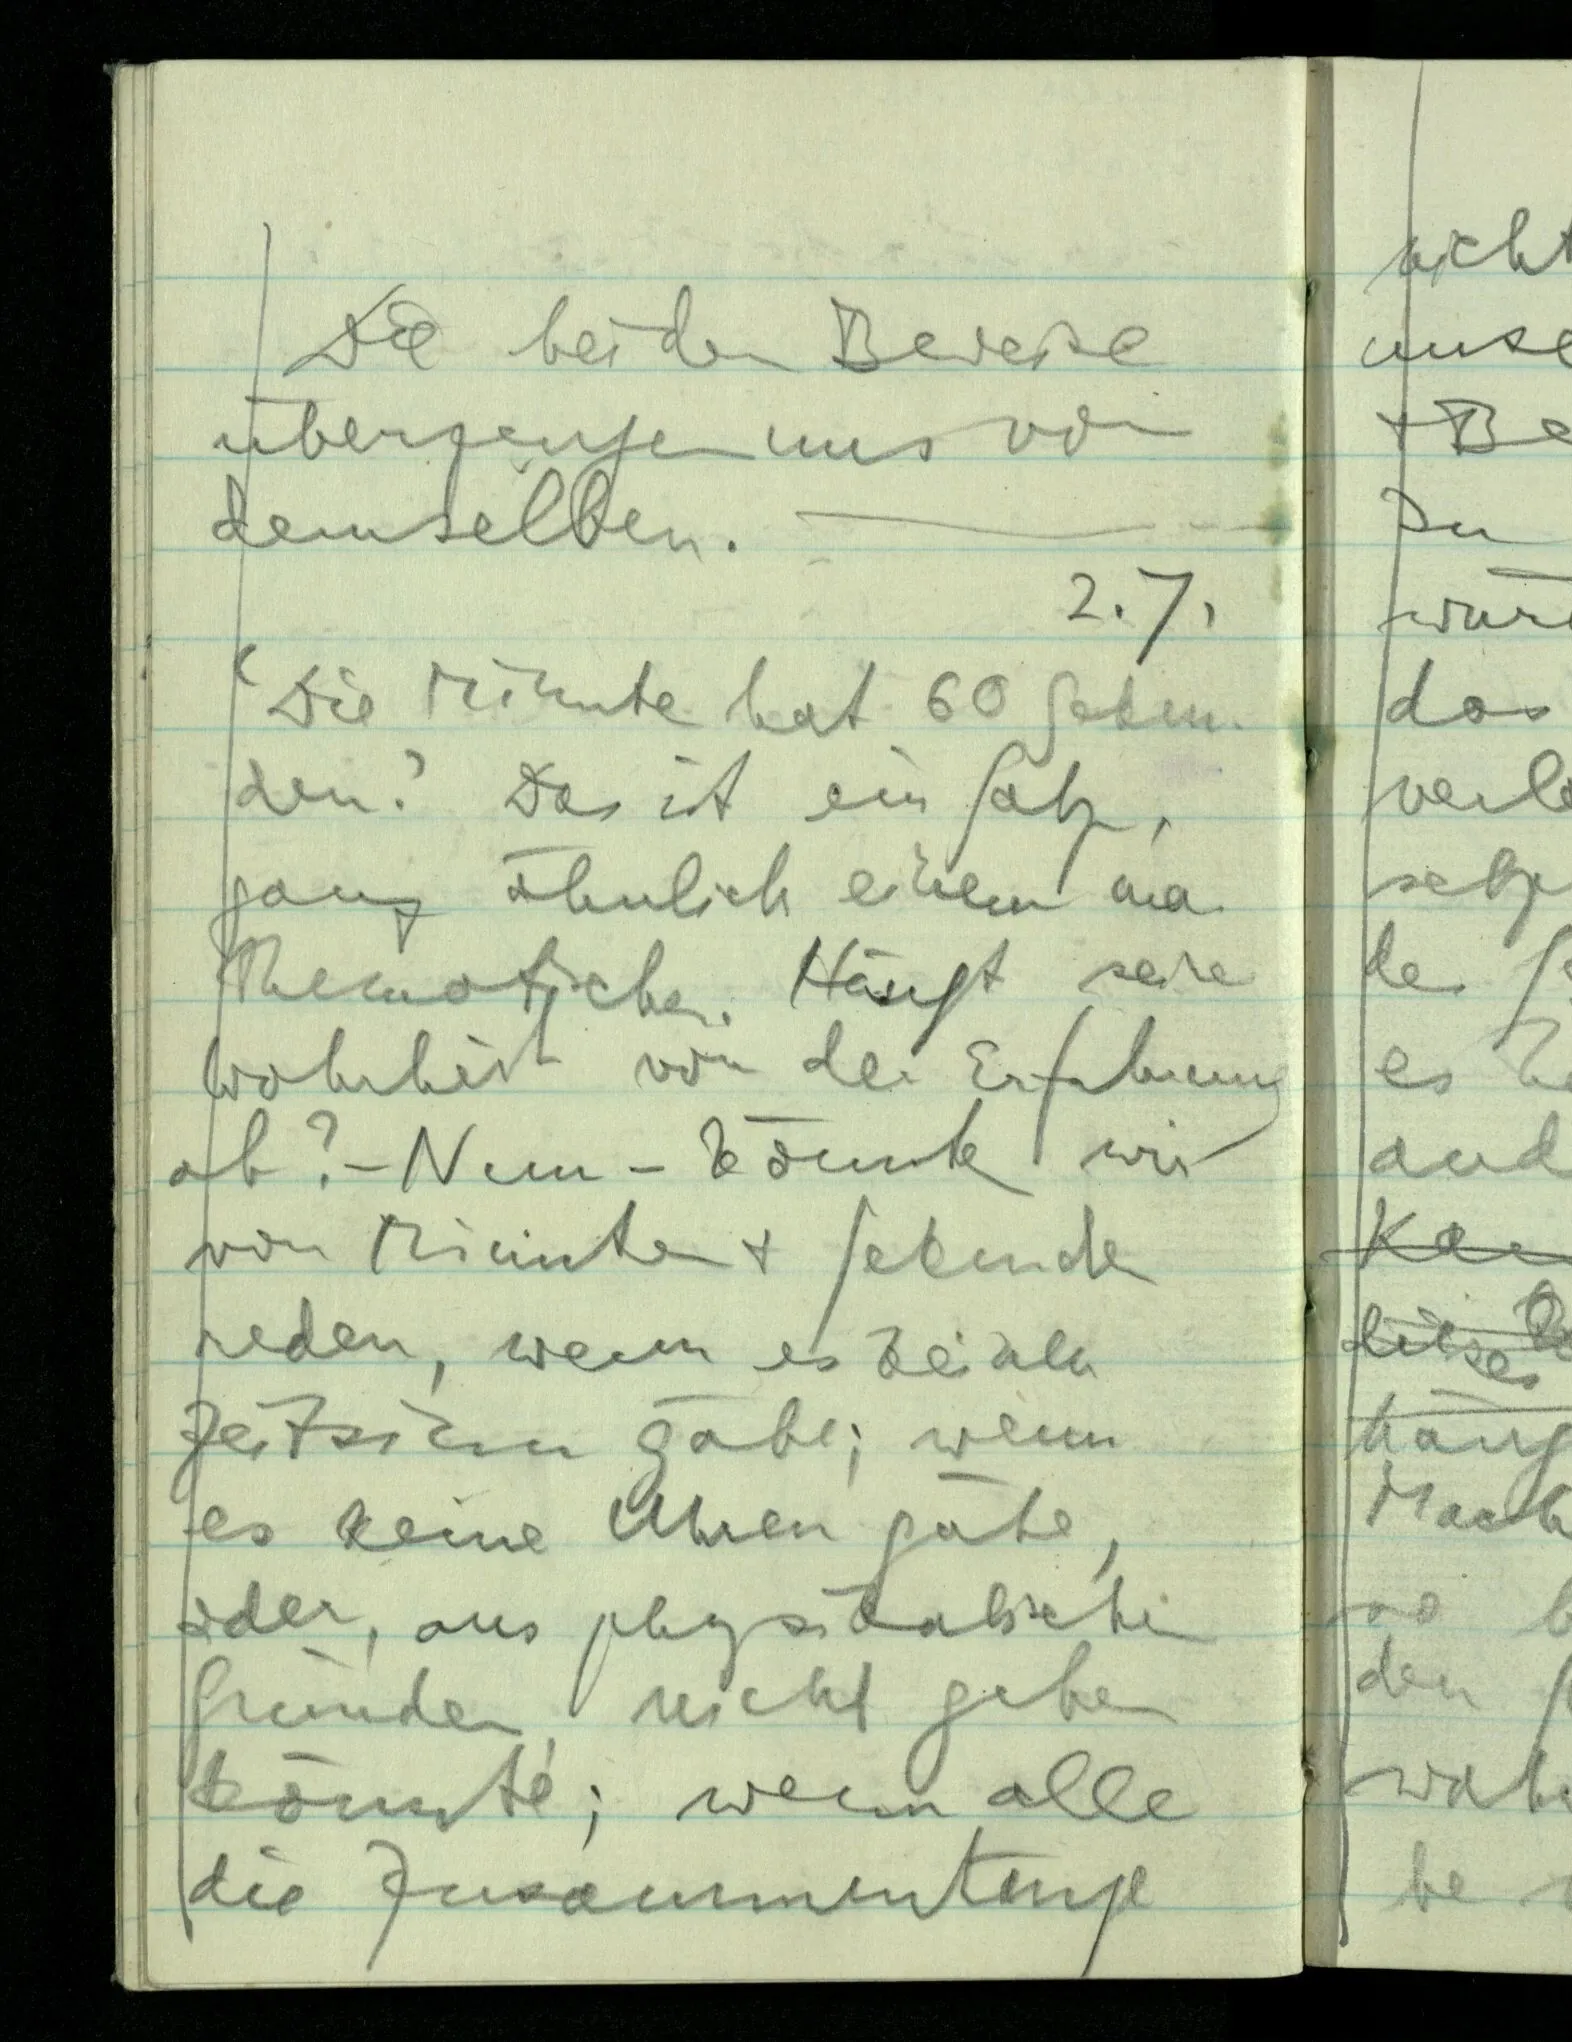 Die beiden Beweise
überzeugen uns von
demselben.
2.7.
'Die Minute hat 60 Sekun-
den.' Das ist ein Satz,
ganz ähnlich einem ma-
thematischen. Hängt seine
Wahrheit von der Erfahrung
ab? – Nun – könnten wir
von Minuten + Sekunden
reden, wenn es keinen
Zeitsinn gäbe; wenn
es keine Uhren gäbe,
oder, aus physikalischen
Gründen, nicht geben
könnte; wenn alle
die Zusammenhänge
nicht
unse
+ Be
Zu
würd
das
verl
setz
der
es
and
Kan
dieses
häng
Mach
so b
den
wahr
be